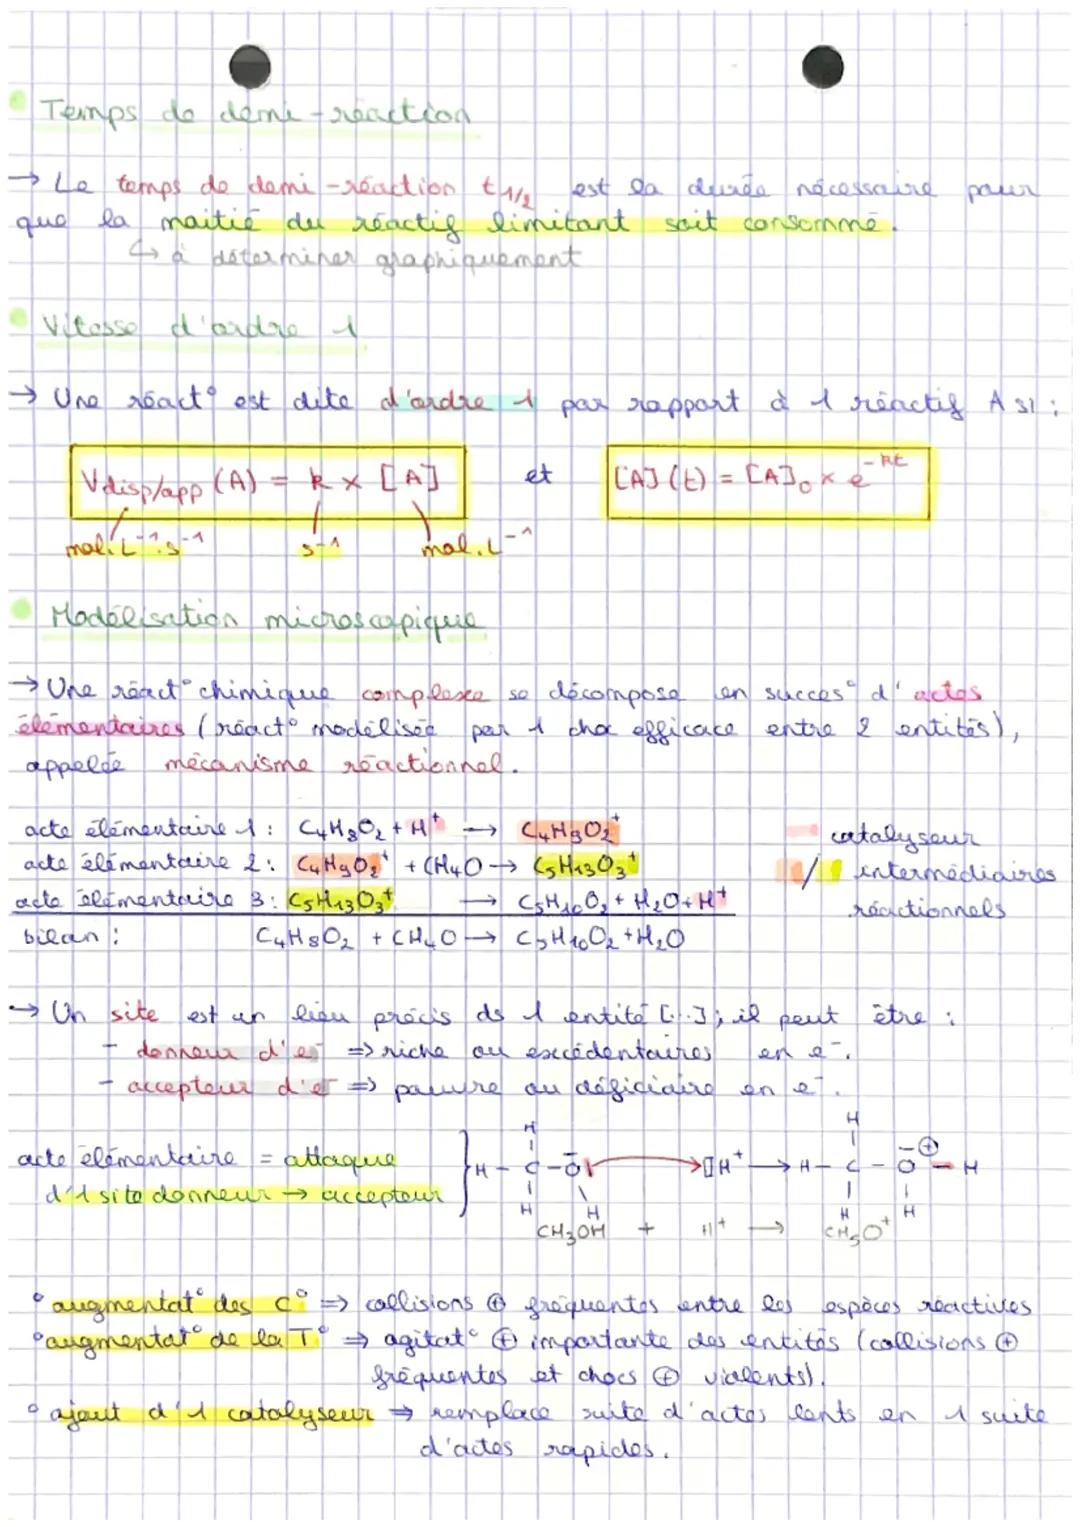 Temps de demi-réaction
→ Le temps de demi-réaction t1/2 est la durée nécessaire pour
que la moitié du réactif limitant soit consommé.
↳ à déterminer graphiquement
Vitesse d'ordre 1
→ Une réact° est dite d'ordre 1 par rapport à 1 réactif A si :
Vdisp/app (A) = k × [A] et [A](t) = [A]₀ × e^-kt
mol.L⁻¹.s⁻¹ s⁻¹ mol.L⁻¹
Modélisation microscopique
→ Une réact° chimique complexe se décompose en success° d'actes
élémentaires (réact° modélisée par 1 choc efficace entre 2 entités),
appelée mécanisme réactionnel.
acte élémentaire 1 : C₄H₈O₂ + H⁺ → C₄H₉O₂⁺ catalyseur
acte élémentaire 2 : C₄H₉O₂⁺ + CH₄O → C₅H₁₃O₃⁺ / intermédiaires
acte élémentaire 3 : C₅H₁₃O₃⁺ → C₅H₁₀O₂ + H₂O + H⁺ réactionnels
bilan : C₄H₈O₂ + CH₄O → C₅H₁₀O₂ + H₂O
→ Un site est un lieu précis ds 1 entité [...]; il peut être :
- donneur d'e⁻ ⇒ riche ou excédentaires en e⁻.
- accepteur d'e⁻ ⇒ pauvre ou déficiaire en e⁻.
H H
acte élémentaire = attaque H - C - O → H⁺ → H - C - O ⊕ - H
d'1 site donneur → accepteur H H H H
CH₃OH + H⁺ → CH₅O⁺
° augmentat° des C° ⇒ collisions ⊕ fréquentes entre les espèces réactives
° augmentat° de la T° ⇒ agitat° ⊕ importante des entités (collisions ⊕
fréquentes et chocs ⊕ violents).
° ajout d'1 catalyseur ⇒ remplace suite d'actes lents en 1 suite
d'actes rapides.